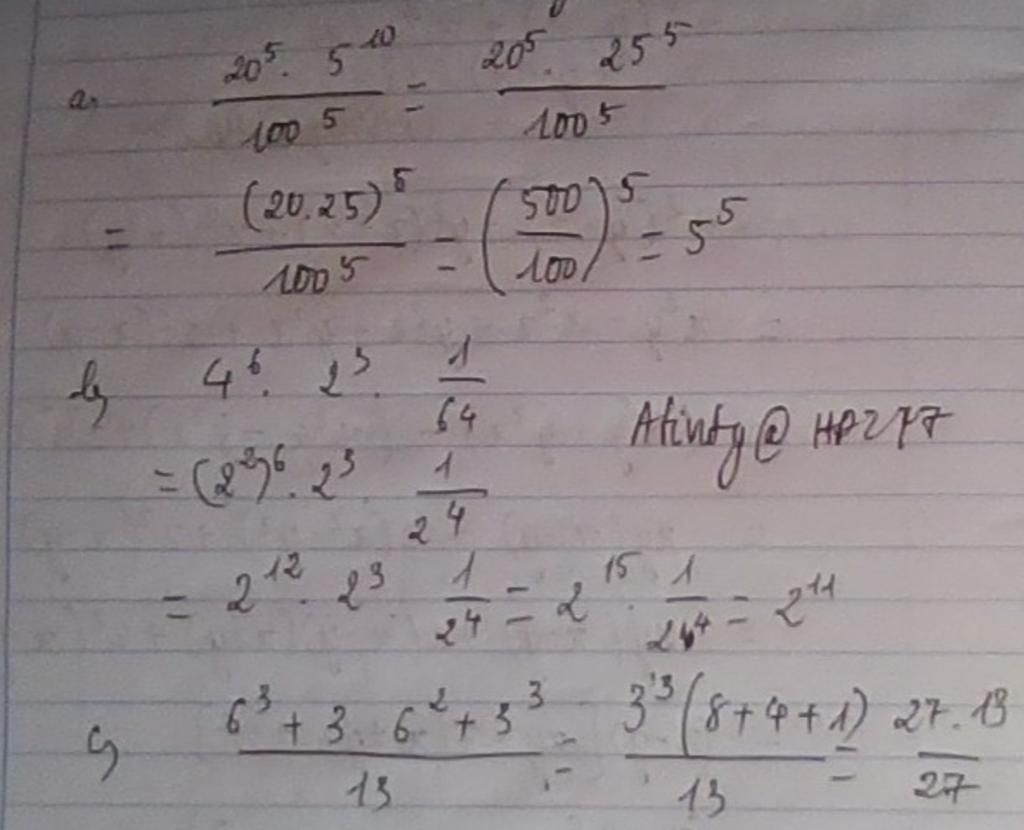 a, 20^5 . 5^10 / 100^5 = 20^5 . 25^5 / 100^5
= (20.25)^5 / 100^5 = (500/100)^5 = 5^5
b, 4^6 . 2^3 . 1/64
Atinty@ HP277
= (2^2)^6 . 2^3 . 1/2^4
= 2^12 . 2^3 . 1/2^4 = 2^15 . 1/2^4 = 2^11
c, 6^3 + 3 . 6^2 + 3^3 / 13 = 3^3 (8+4+1) / 13 = 27 . 13 / 27